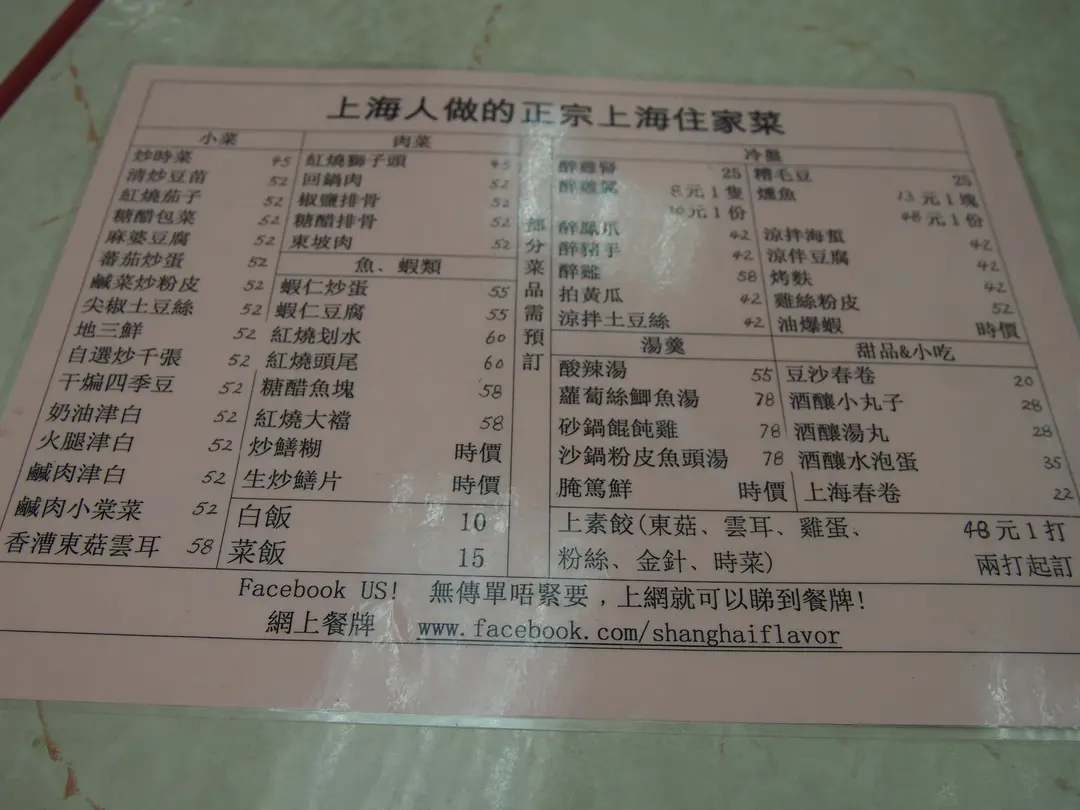 上海人做的正宗上海住家菜
小菜
炒時菜 45
清炒豆苗 52
紅燒茄子 52
糖醋包菜 52
麻婆豆腐 52
蕃茄炒蛋 52
鹹菜炒粉皮 52
尖椒土豆絲 52
地三鮮 52
自選炒千張 52
干煸四季豆 52
奶油津白 52
火腿津白 52
鹹肉津白 52
鹹肉小棠菜 52
香漕東菇雲耳 58
肉菜
紅燒獅子頭 45
回鍋肉 52
椒鹽排骨 52
糖醋排骨 52
東坡肉 52
魚、蝦類
蝦仁炒蛋 55
蝦仁豆腐 55
紅燒划水 60
紅燒頭尾 60
糖醋魚塊 58
紅燒大襠 58
炒鱔糊 時價
生炒鱔片 時價
白飯 10
菜飯 15
部分菜品需預訂
冷盤
醉雞腎 25
醉雞 8元1隻
元1份
醉鳳爪 42
醉豬手 42
醉雞 58
拍黃瓜 42
涼拌土豆絲 42
糟毛豆 25
燻魚 13元1塊
48元1份
涼拌海蜇 42
涼伴豆腐 42
烤麩 42
雞絲粉皮 52
油爆蝦 時價
湯羹
酸辣湯 55
蘿蔔絲鯽魚湯 78
砂鍋餛飩雞 78
沙鍋粉皮魚頭湯 78
腌篤鮮 時價
甜品&小吃
豆沙春卷 20
酒釀小丸子 28
酒釀湯丸 28
酒釀水泡蛋 35
上海春卷 22
上素餃(東菇、雲耳、雞蛋、 48元1打
粉絲、金針、時菜) 兩打起訂
Facebook US! 無傳單唔緊要，上網就可以睇到餐牌!
網上餐牌 www.facebook.com/shanghaiflavor